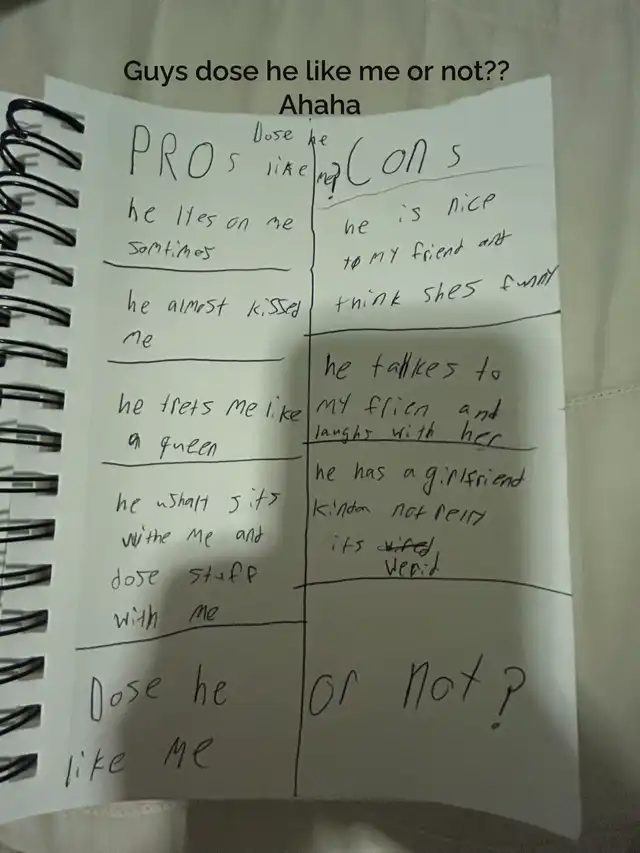 Guys dose he like me or not??
Ahaha
Dose he
like me?
PROs
he lyes on me
somtimes
he almost kissed
me
he trets me like
a queen
he ushall sits
withe me and
dose stuff
with me
Cons
he is nice
to my friend and
think shes funny
he tallkes to
my frien and
laughs with her
he has a girlfriend
kindan not relly
its
Werid
Dose he
like me
or not?